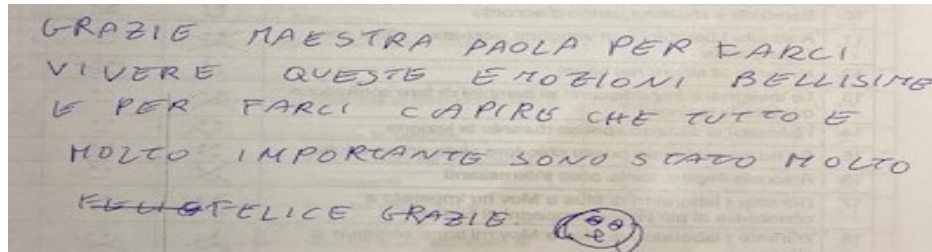 GRAZIE MAESTRA PAOLA PER FARCI
VIVERE QUESTE EMOZIONI BELLISIME
E PER FARCI CAPIRE CHE TUTTO E
MOLTO IMPORTANTE SONO STATO MOLTO
FELICE GRAZIE.